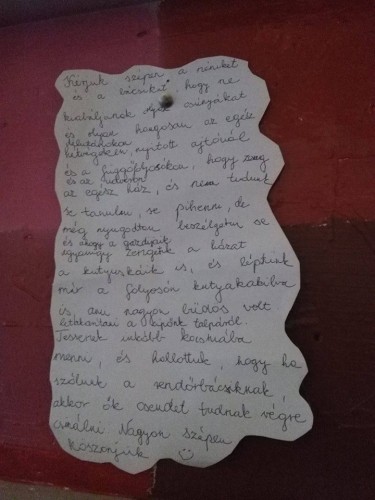 Kérjük szépen a néniket
és a bácsikat, hogy ne
kiabáljanak csúnyákat
és olyan hangosan az egész
délutánokon
hétvégeken, nyitott ajtónál
és a függőfolyosókon, hogy zeng
és az udvaron
az egész ház, és nem tudunk
se tanulni, se pihenni, de
még nyugodtan beszélgetni se
és ahogy a gazdájuk
ugyanúgy zengenk a házat
a kutyuskáik is, és léptünk
már a folyosón kutyakakiba
is, ami nagyon büdös volt
letakarítani a cipőnk talpáról.
Tessenek inkább kocsmába
menni, és hallottuk, hogy ha
szólunk a rendőrbácsiknak,
akkor ők csendet tudnak végre
csinálni Nagyon szépen
köszönjük